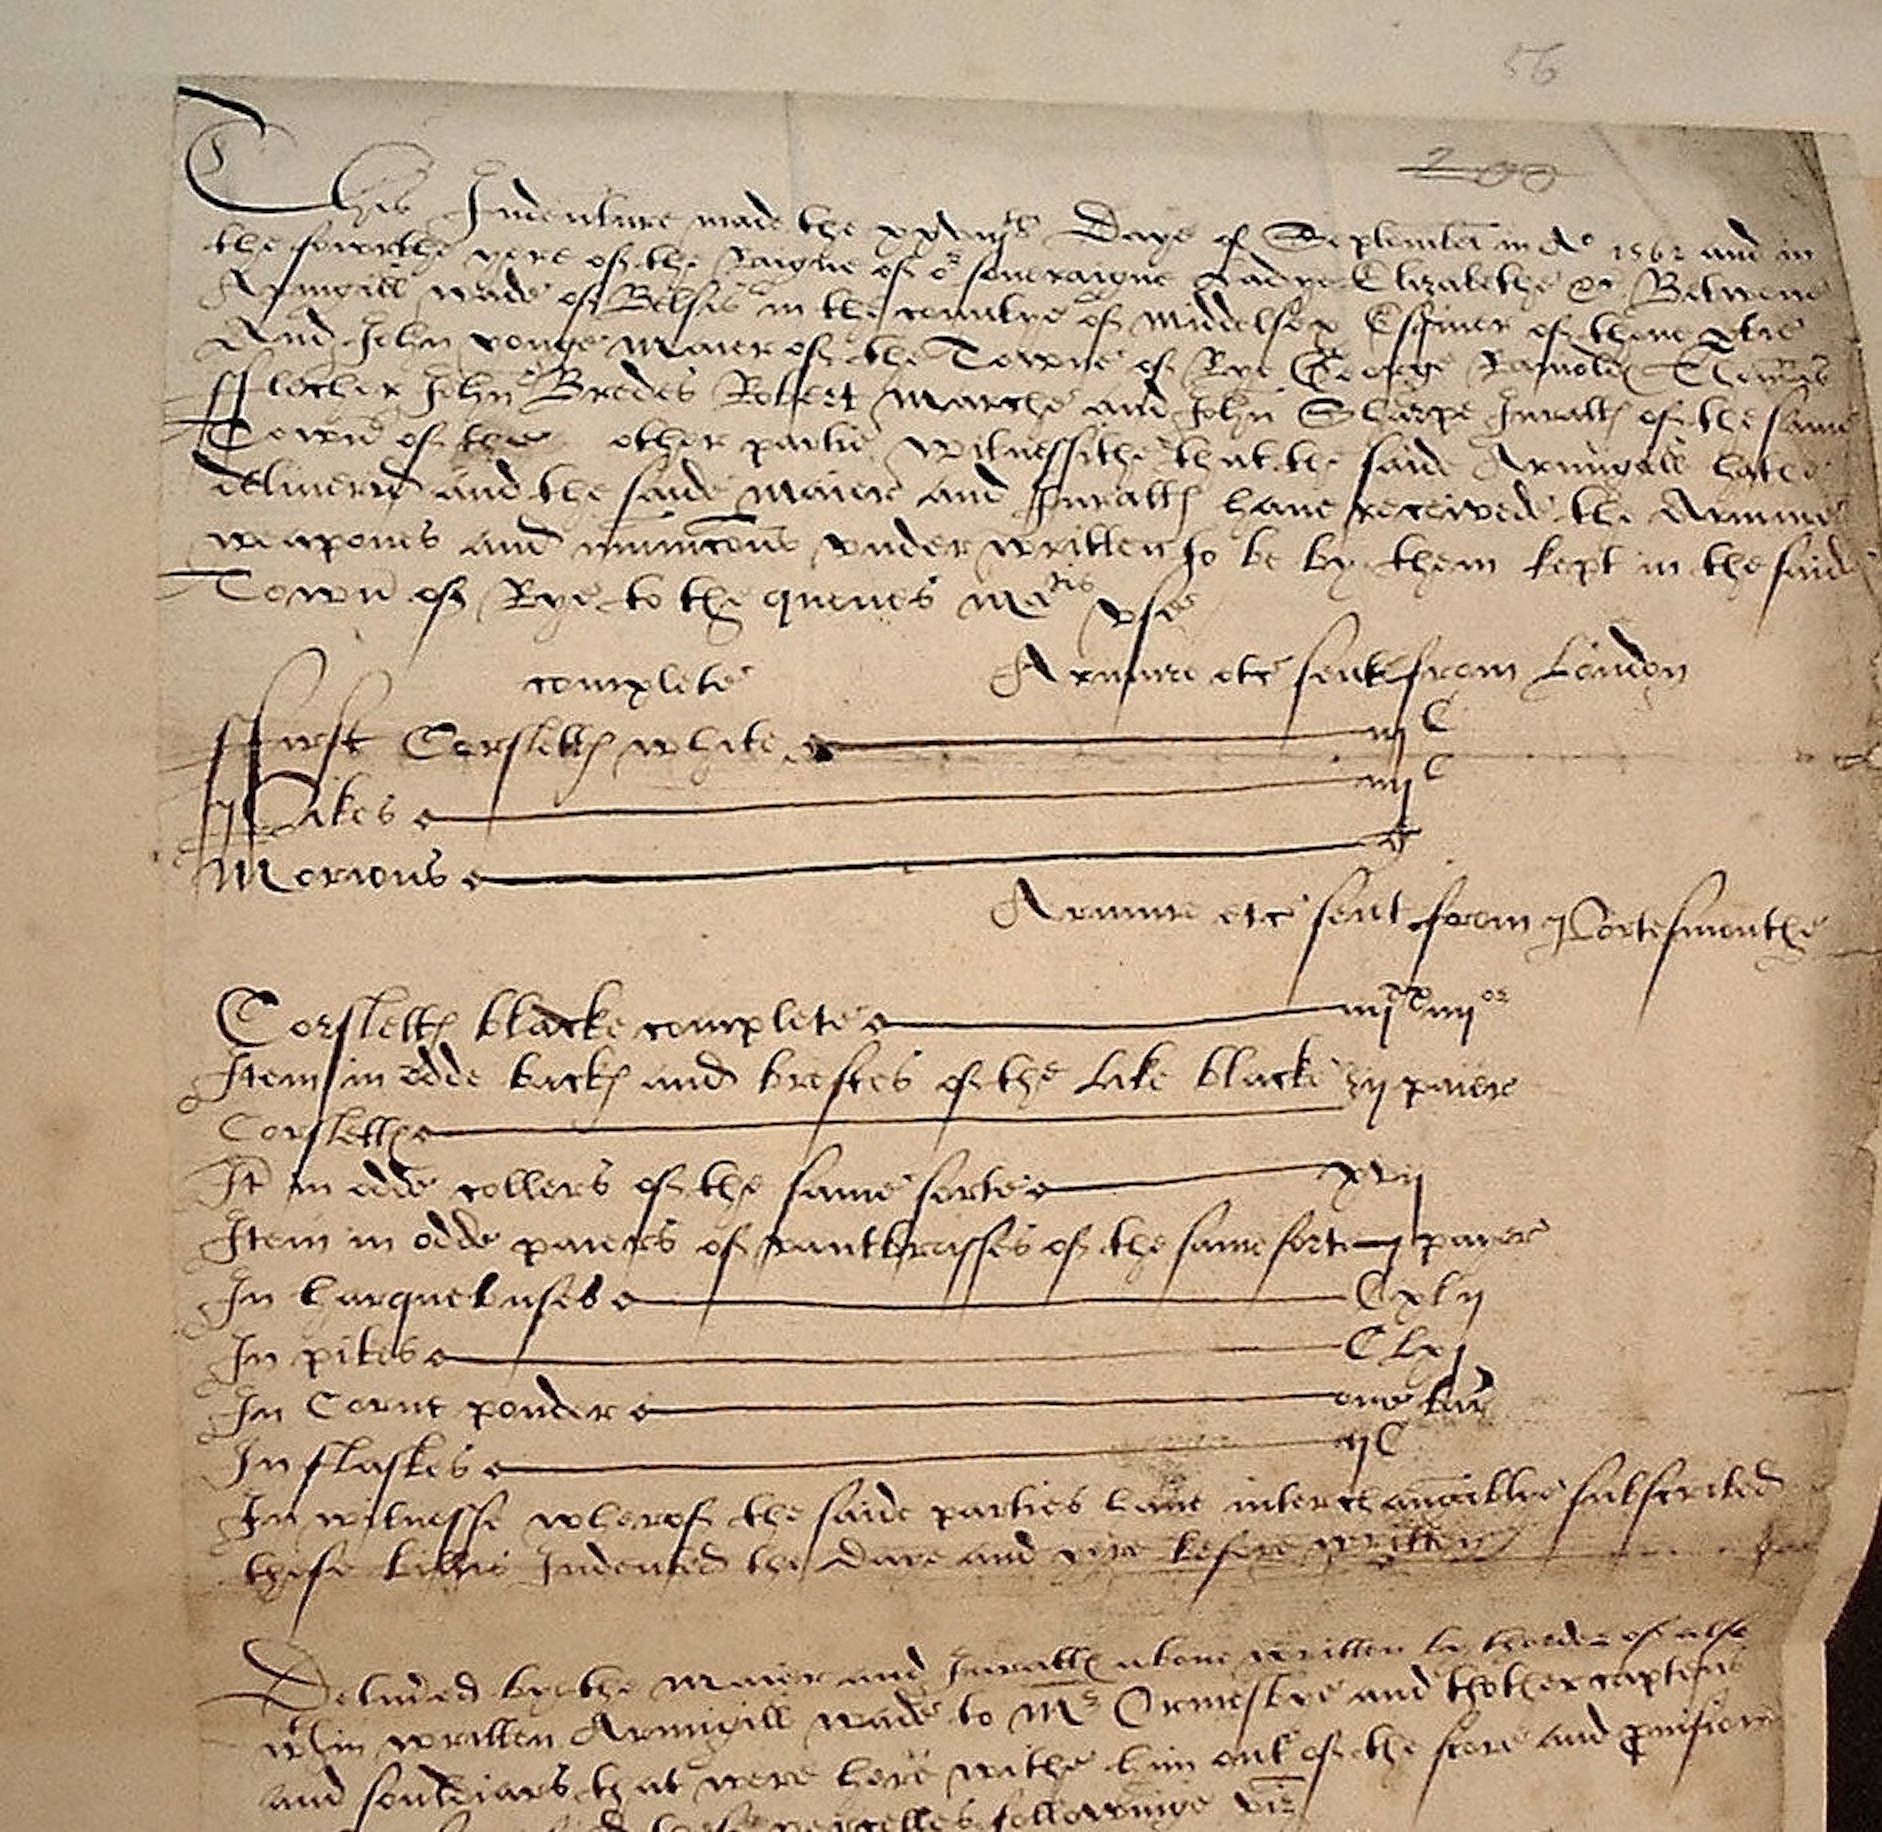 56
200
This Indenture made the xxviijth Daye of September in Ao 1562 and in
the fowrthe yere of the Raigne of or soveraigne Ladye Elizabethe &c Betwene
Armigill wade of Belses in the countye of Middelsex Esquier of thone ptie
And John yonge Maier of the Towne of Rye George Raynoldes Thomas
ffletcher John Bredes Robert Marche and John Sharpe Juratts of the same
Towne of the other partie witnessithe that the saide Armigill hathe
delivered and the saide Maier and Juratts have receivede the Armure
weapones and municons vnder written to be by them kept in the saide
Town of Rye to the quenes Matis vse
complete Armure etc sent from London
ffirst Corsletts white iijC
Pikes iiijC
Morions C
Armure etc sent from Portesmouthe
Corsletts blacke complete iiijxxiiijor
Item in odde backs and brestes of the like blacke xij paiere
Corsletts
It in odde collers of the same sorte xvij
Item in odde paieres of vantbrasses of the same sort j paier
In harquebuses Cxlij
In pikes Clxj
In Corne pouder one barr
In flaskes ijC
In witnesse wherof the saide parties have interchangablie subscribed
these billes Indented the Daye and yere before written
Delivred by the Maier and Juratts above written by thorder of
wthin written Armigill wade to Mr Ormesbye and thother captens
and souldiars that were here withe him out of the store and provision
parcelles followinge viz